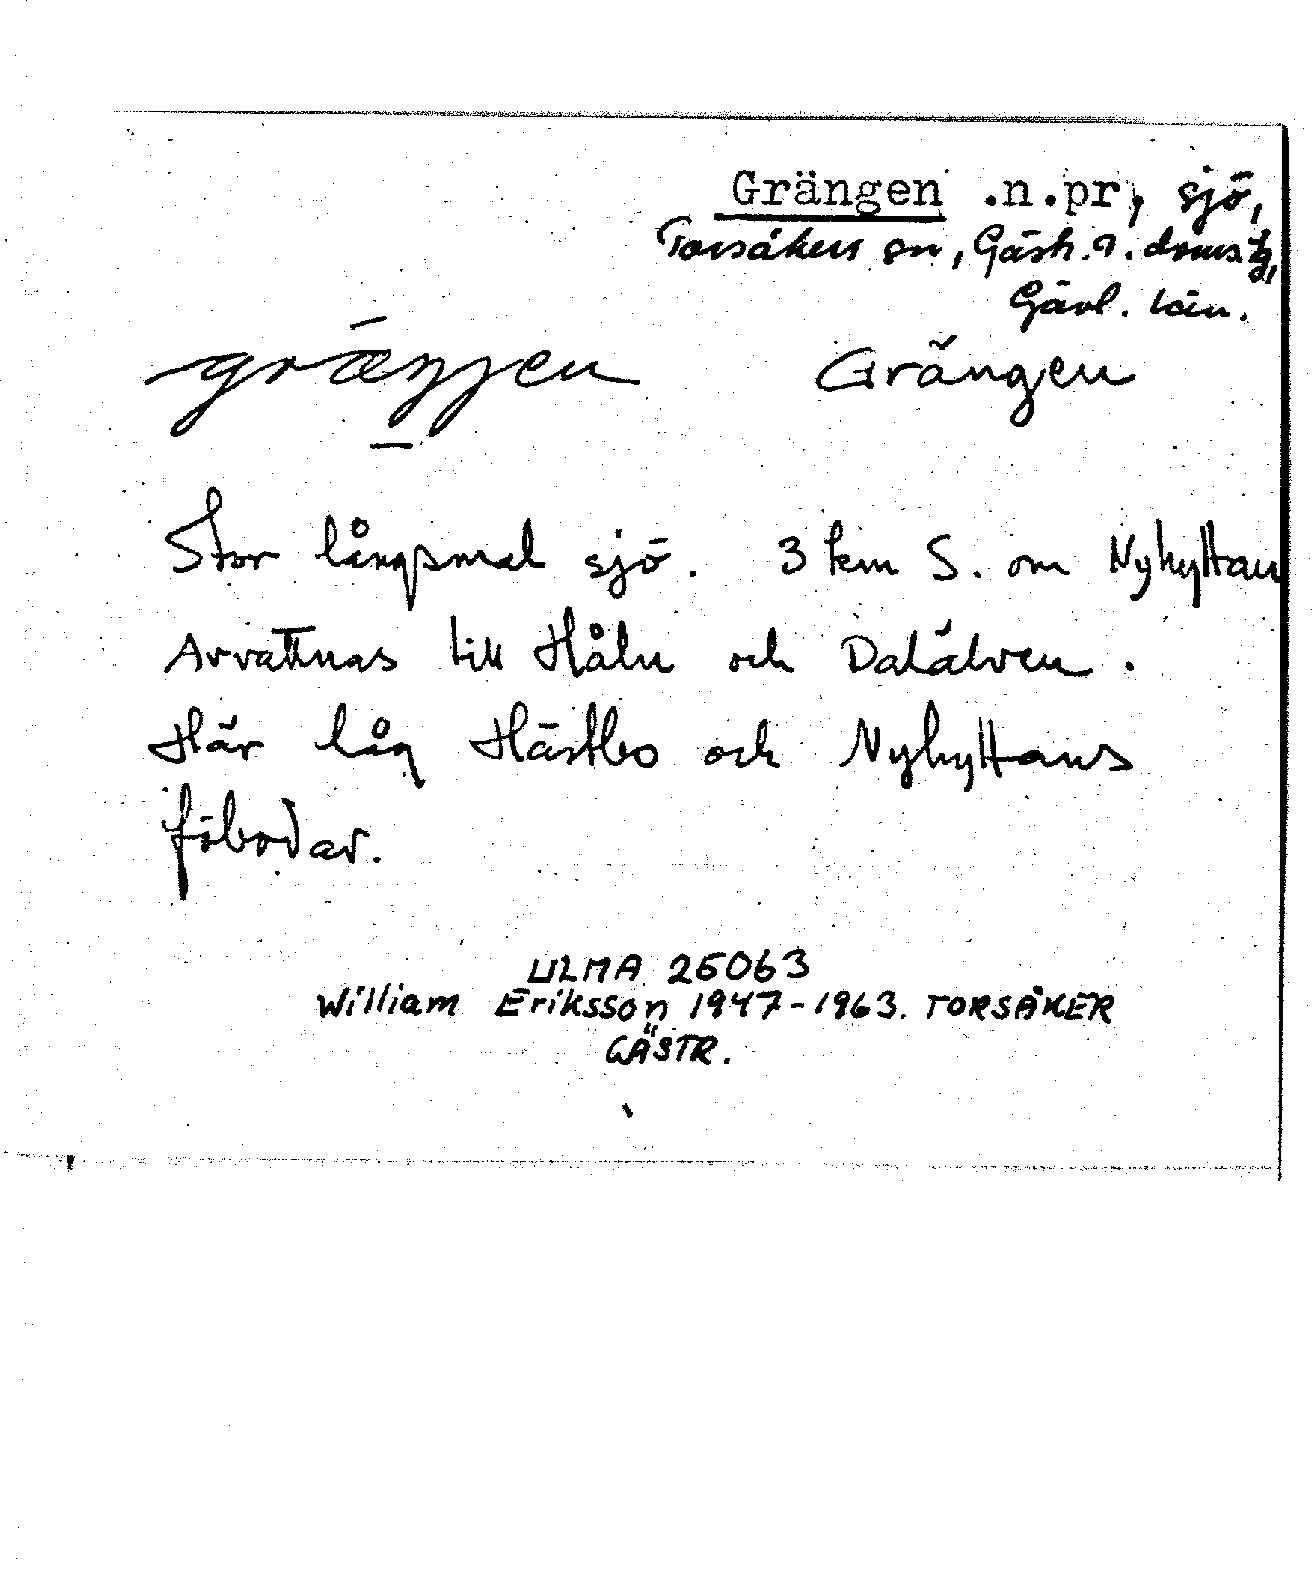 Grängen .n.pr, sjö,
Torsåkers sn, Gästr. ö. doms.tg,
Gävl. län.
græŋŋen Grängen
Stor långsmal sjö. 3 km S. om Nyhyttan
Avvattnas till Håln och Dalälven.
Här låg Hästbo och Nyhyttans
fäbodar.
ULMA 25063
William Eriksson 1947-1963. TORSÅKER
GÄSTR.